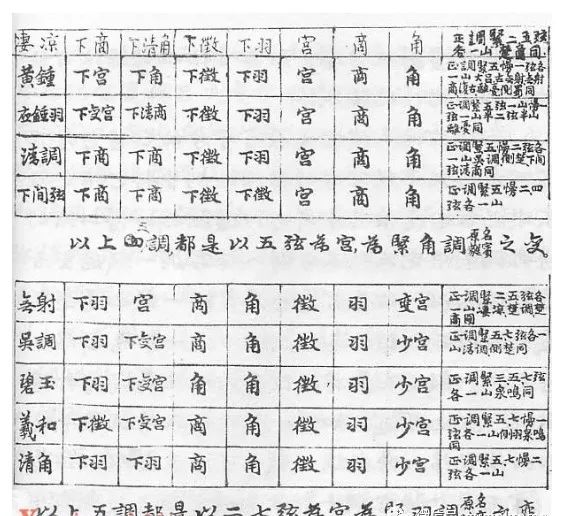 凄凉 下商 下清角 下徵 下羽 宫 商 角 正調緊二五弦各一山楚商同
黄鍾 下宫 下角 下徵 下羽 宫 商 角 正調緊五慢一弦各一山
應鍾羽 下变宫 下清商 下徵 下羽 宫 商 角
清調 下商 下商 下徵 下羽 宫 商 角
下間弦 下商 下商 下徵 下徵 宫 商 角 正調緊五慢二四弦各一山
以上三調都是以五弦為宫,為緊角調原名蕤賓之变。
無射 下羽 宫 商 角 徵 羽 变宫 正調緊二五弦各一山凄凉楚調楚商同
吳調 下羽 下变宫 商 角 徵 羽 少宫 正調緊五七弦各一山清調側楚同
碧玉 下羽 下变宫 角 角 徵 羽 少宫 正調緊三五七弦各一山泉鳴同
羲和 下徵 下变宫 商 角 徵 羽 少宫 正調緊五七慢一弦各一山側羽泉鳴同
清角 下羽 下羽 商 角 徵 羽 少宫 正調緊五七慢二弦各一山
以上五調都是以二七弦為宫為緊羽調原名